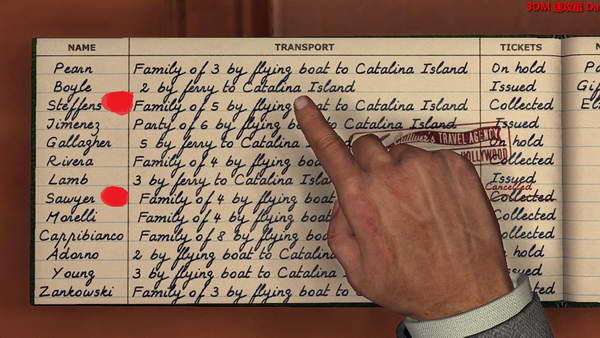 3DM
NAME TRANSPORT TICKETS
Pearn Family of 3 by flying boat to Catalina Island On hold
Boyle 2 by ferry to Catalina Island Issued
Steffens Family of 5 by flying boat to Catalina Island Collected
Jimenez Party of 6 by flying Catalina Island Issued
Gallagher 5 by ferry to Catalina hold
Rivera Family of 4 by flying Collected
Lamb 3 by ferry to Catalina Issued
Sawyer Family of 4 by flying boat Cancelled Collected
Morelli Family of 4 by flying Collected
Cappibianco Family of 8 by flying Collected
Adorno 2 by flying boat to Catalina hold
Young 3 by flying boat to Catalina Issued
Zankowski Family of 3 by flying boat Collected
TRAVEL AGENCY
HOLLYWOOD